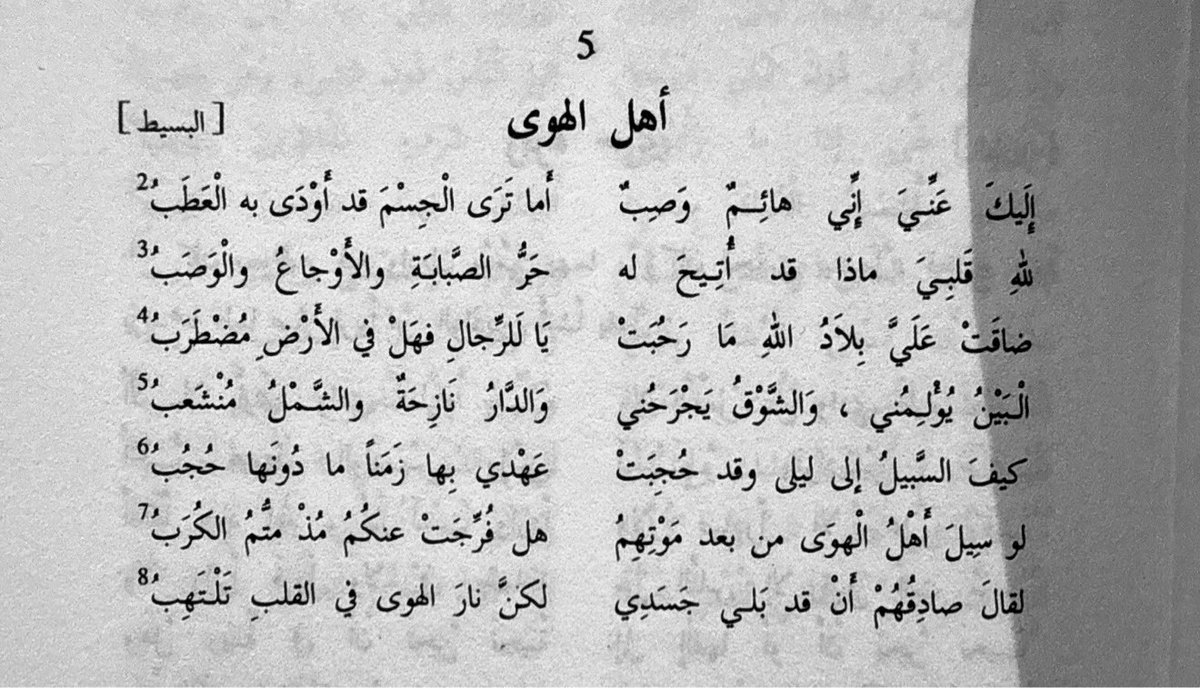 5
أهل الهوى [البسيط]
إِلَيكَ عَنِّيَ إِنِّي هائِمٌ وَصِبٌ أَما تَرَى الْجِسْمَ قد أَوْدَى به الْعَطَبُ2
للهِ قَلبِيَ ماذا قد أُتِيحَ له حَرُّ الصَّبابَةِ والأَوْجاعُ والْوَصَبُ3
ضاقَتْ عَلَيَّ بِلاَدُ اللهِ مَا رَحُبَتْ يَا لَلرِّجالِ فهَلْ في الأَرْضِ مُضْطَرَبُ4
الْبَيْنُ يُؤْلِمُني ، وَالشَّوْقُ يَجْرَحُني وَالدَّارُ نَازِحَةٌ والشَّمْلُ مُنْشَعبُ5
كيفَ السَّبيلُ إلى ليلى وقد حُجِبَتْ عَهْدي بِها زَمَناً ما دُونَها حُجُبُ6
لو سِيلَ أَهْلُ الْهوَى من بعد مَوْتِهِمُ هل فُرِّجَتْ عنكُمُ مُذْ متُّمُ الكُرَبُ7
لقالَ صادِقُهُمْ أَنْ قد بَلي جَسَدِي لكنَّ نارَ الهوى في القلبِ تَلْتَهِبُ8